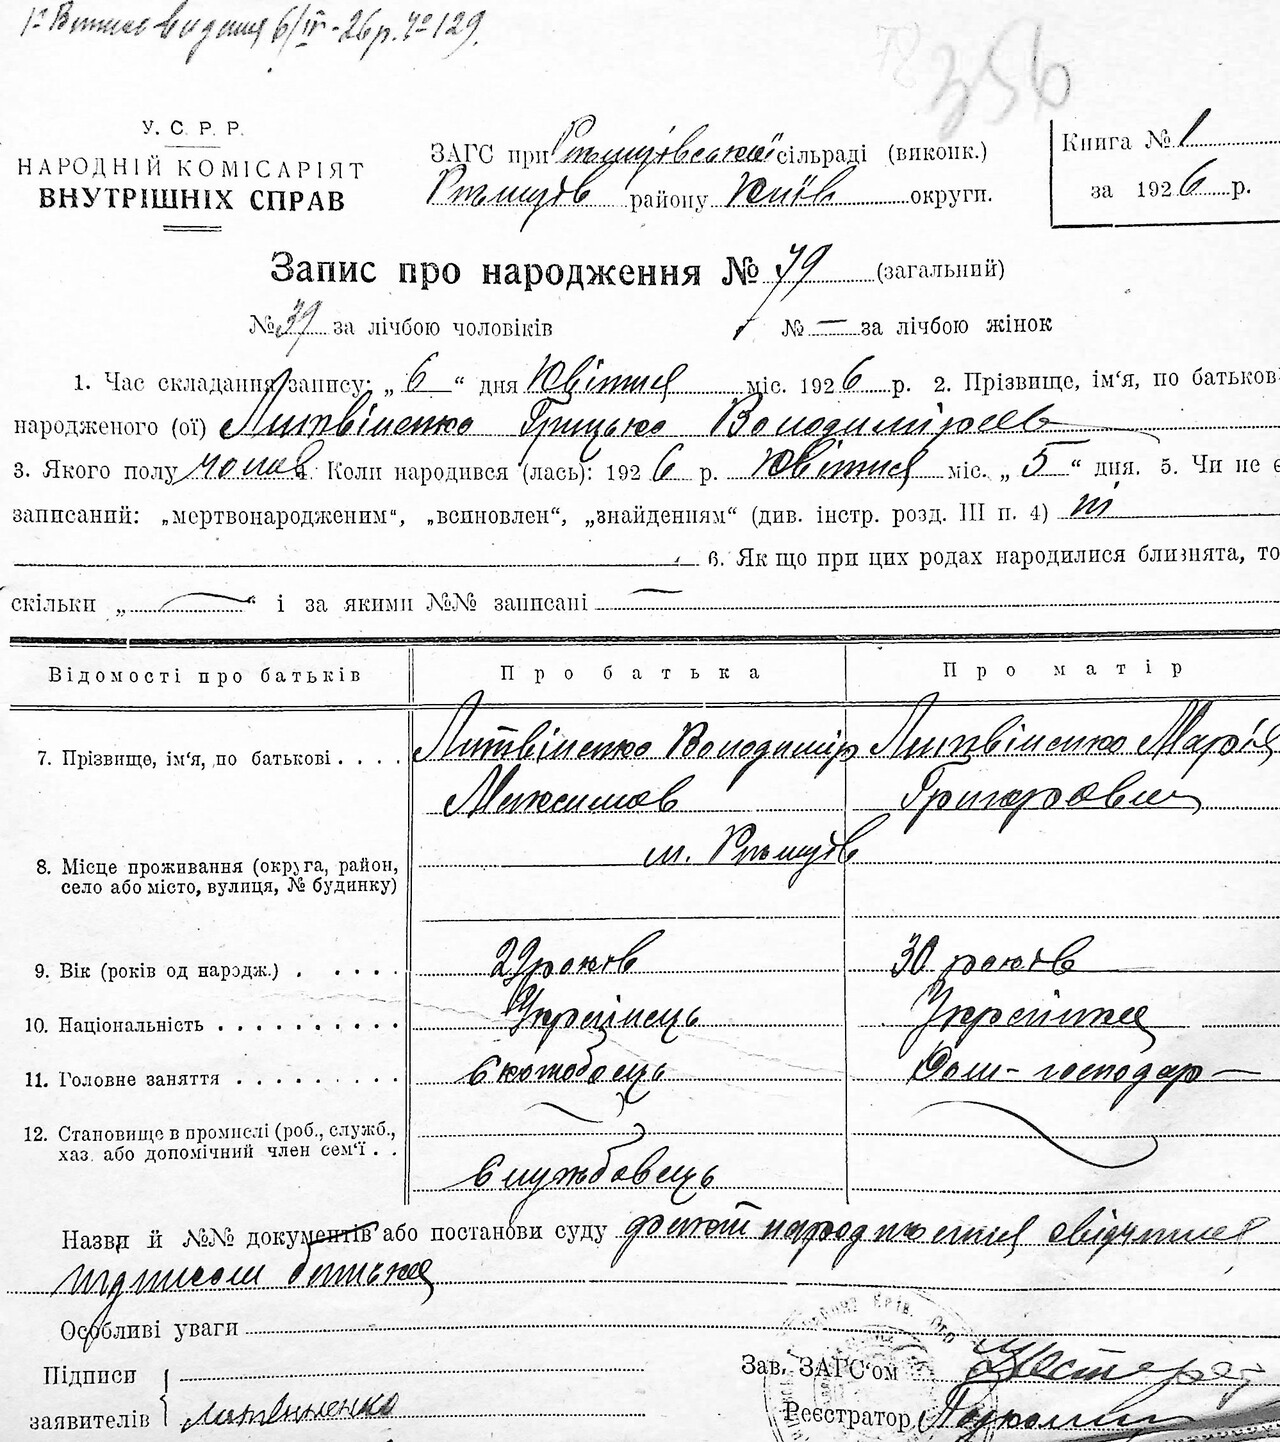 видання 6/IV-26р. № 129.
356
У. С. Р. Р.
НАРОДНІЙ КОМІСАРІЯТ
ВНУТРІШНІХ СПРАВ
ЗАГС при Ржищівській сільраді (виконк.)
Ржищів району Київ округи.
Книга № 1
за 1926 р.
Запис про народження № 79 (загальний)
№ 39 за лічбою чоловіків № — за лічбою жінок
1. Час складання запису: „ 6 “ дня Квітня міс. 1926 р. 2. Прізвище, ім‘я, по батькові
народженого (ої) Литвіненко Грицько Володимиров
3. Якого полу чолов 4. Коли народився (лась): 1926 р. Квітня міс. „ 5 “ дня. 5. Чи не є
записаний: „мертвонародженим“, „всиновлен“, „знайденням“ (див. інстр. розд. III п. 4) ні
6. Як що при цих родах народилися близнята, то
скільки „ — “ і за якими №№ записані —
Відомості про батьків Про батька Про матір
7. Прізвище, ім‘я, по батькові . . . . Литвіненко Володимир Литвіненко Марія
Максимов Григоровна
8. Місце проживання (округа, район, м. Ржищів
село або місто, вулиця, № будинку)
9. Вік (років од народж.) . . . . . 29 років 30 років
10. Національність . . . . . . . . . . Українець Українка
11. Головне заняття . . . . . . . . . Дом-господар—
12. Становище в промислі (роб., служб.,
хаз. або допомічний член сем‘ї . .
Службовець
Назви й №№ документів або постанови суду факт народження свідчився
підписом батька
Особливі уваги
Підписи
заявителів Литвиненко
Зав. ЗАГС‘ом
Реєстратор